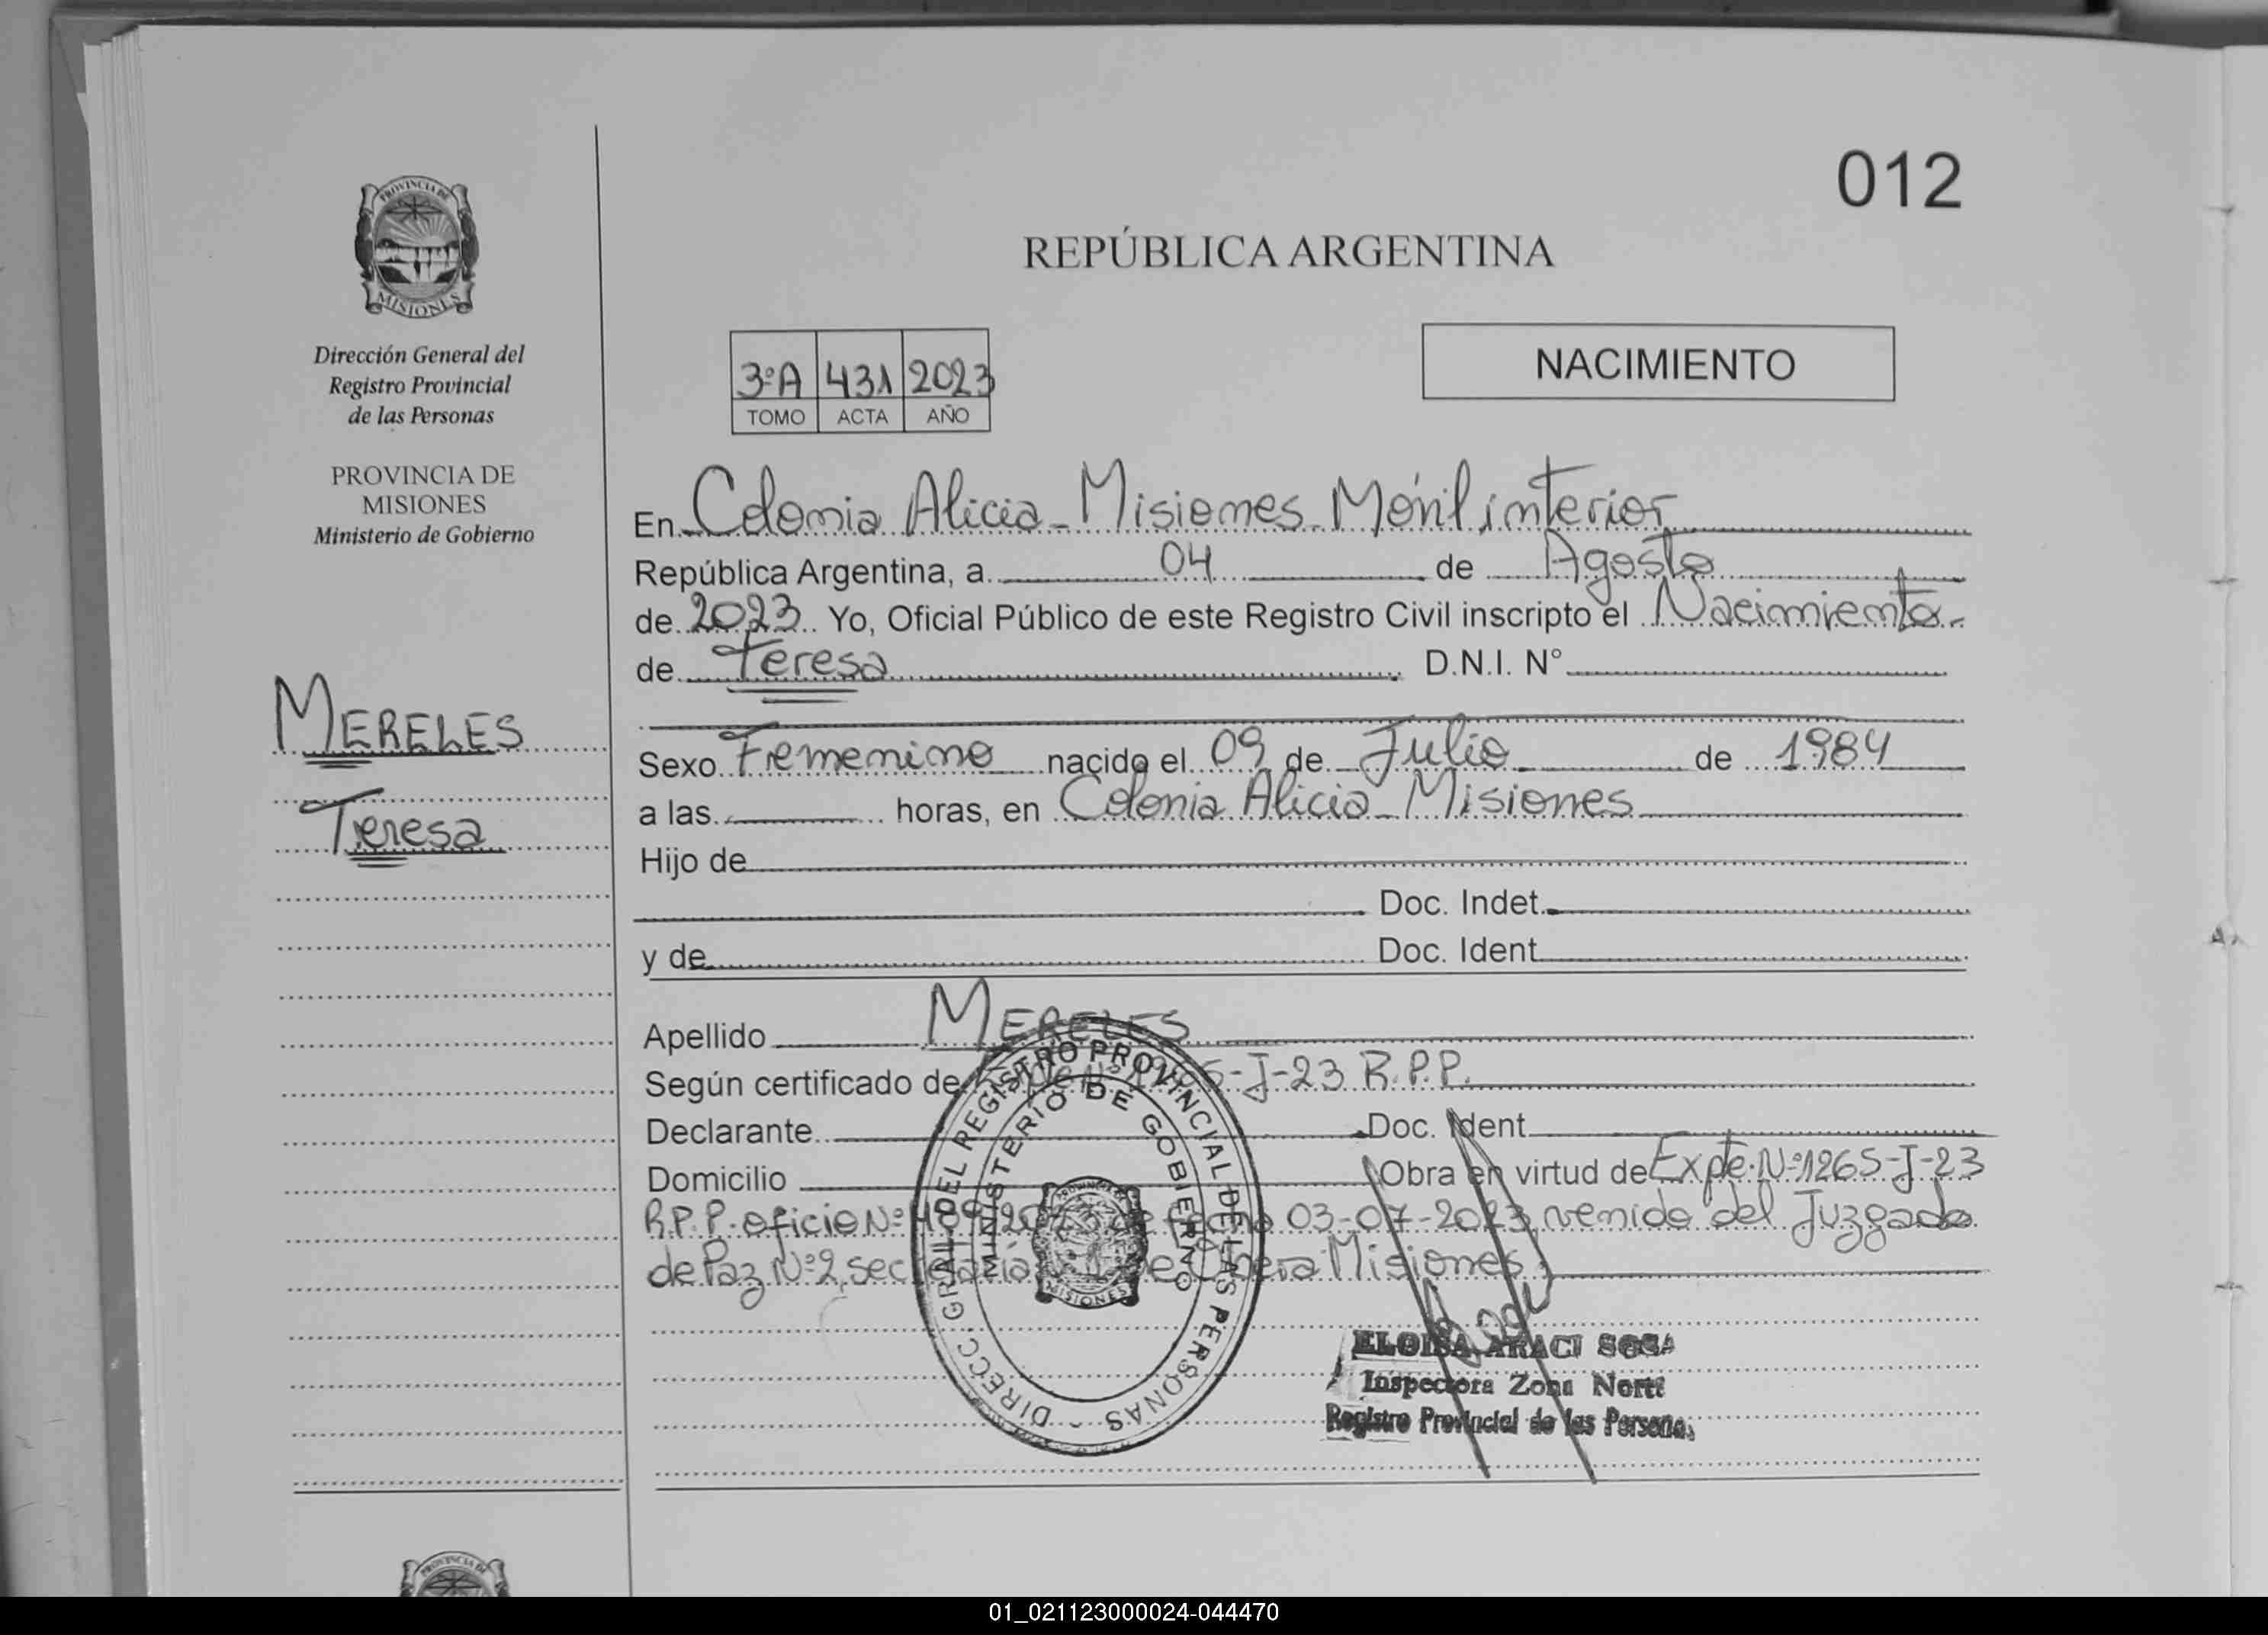 012
PROVINCIA DE
MISIONES
Dirección General del
Registro Provincial
de las Personas
PROVINCIA DE
MISIONES
Ministerio de Gobierno
MERELES
Teresa
REPÚBLICA ARGENTINA
NACIMIENTO
3ºA 431 2023
TOMO ACTA AÑO
En Colonia Alicia - Misiones Móvil interior
República Argentina, a 04 de Agosto
de 2023 Yo, Oficial Público de este Registro Civil inscripto el Nacimiento
de Teresa D.N.I. N°
Sexo Femenino nacido el 09 de Julio de 1984
a las horas, en Colonia Alicia - Misiones
Hijo de
Doc. Indet.
y de Doc. Ident
Apellido MERELES
Según certificado de -J-23 R.P.P.
Declarante Doc. Ident
Domicilio Obra en virtud de Expte. Nº 1265-J-23
R.P.P. oficio Nº de fecha 03-07-2023 venido del Juzgado
de Paz Nº 2, Secretaría de Oberá Misiones
DIRECC. GRAL. DEL REGISTRO PROVINCIAL DE LAS PERSONAS -
MINISTERIO DE GOBIERNO
PROVINCIA DE
MISIONES
ELOISA ARACI SOSA
Inspectora Zona Norte
Registro Provincial de las Personas
PROVINCIA DE
01_021123000024-044470